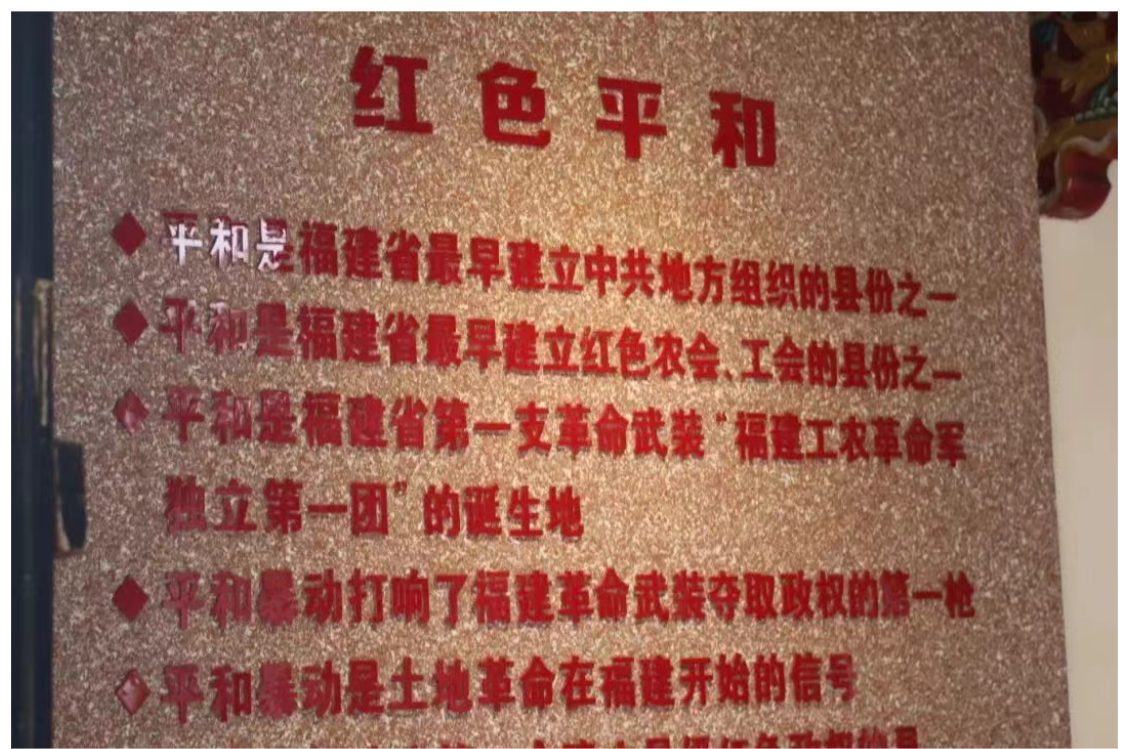 红色平和
◆平和是福建省最早建立中共地方组织的县份之一
◆平和是福建省最早建立红色农会、工会的县份之一
◆平和是福建省第一支革命武装“福建工农革命军
独立第一团”的诞生地
◆平和暴动打响了福建革命武装夺取政权的第一枪
◆平和暴动是土地革命在福建开始的信号